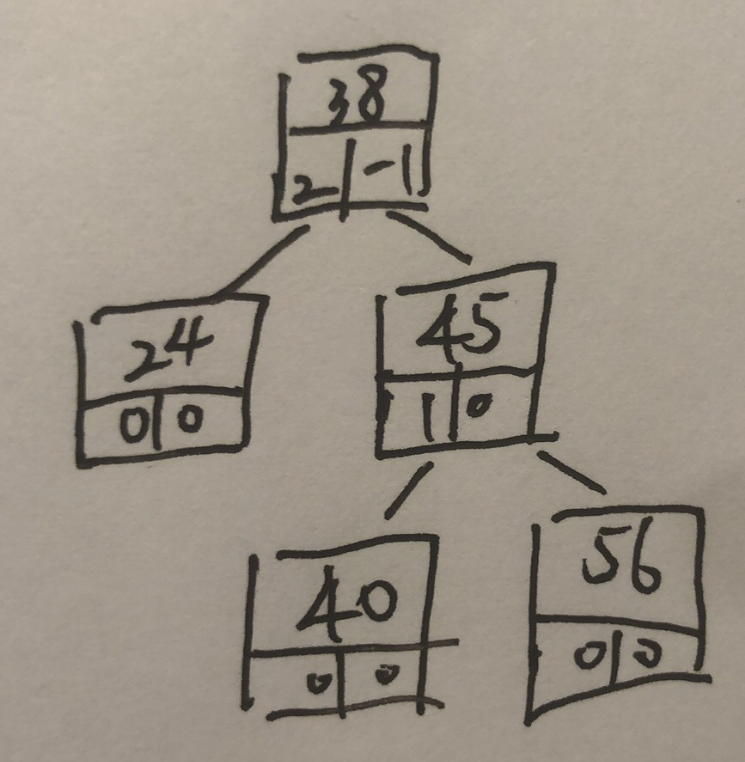 38
2 -1
24
0 0
45
1 0
40
0 0
56
0 0